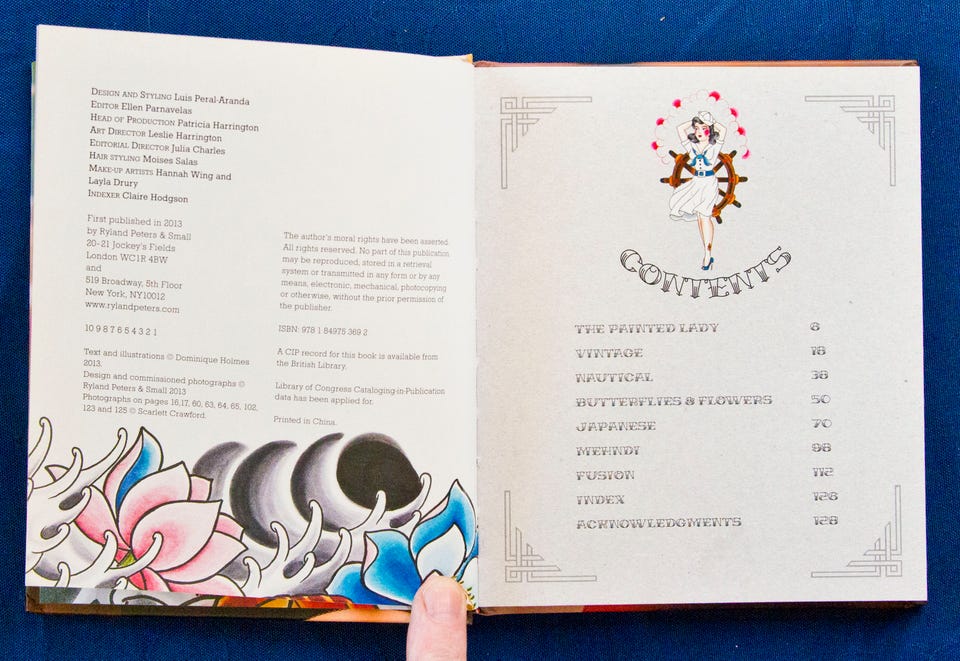 Design and Styling Luis Peral-Aranda
Editor Ellen Parnavelas
Head of Production Patricia Harrington
Art Director Leslie Harrington
Editorial Director Julia Charles
Hair styling Moises Salas
Make-up artists Hannah Wing and
Layla Drury
Indexer Claire Hodgson
First published in 2013
by Ryland Peters & Small
20-21 Jockey's Fields
London WC1R 4BW
and
519 Broadway, 5th Floor
New York, NY10012
www.rylandpeters.com
10 9 8 7 6 5 4 3 2 1
Text and illustrations © Dominique Holmes
2013.
Design and commissioned photographs ©
Ryland Peters & Small 2013
Photographs on pages 16,17, 60, 63, 64, 65, 102,
123 and 125 © Scarlett Crawford.
The author's moral rights have been asserted.
All rights reserved. No part of this publication
may be reproduced, stored in a retrieval
system or transmitted in any form or by any
means, electronic, mechanical, photocopying
or otherwise, without the prior permission of
the publisher.
ISBN: 978 1 84975 369 2
A CIP record for this book is available from
the British Library.
Library of Congress Cataloging-in-Publication
data has been applied for.
Printed in China.
CONTENTS
THE PAINTED LADY 8
VINTAGE 18
NAUTICAL 38
BUTTERFLIES & FLOWERS 50
JAPANESE 70
MEHNDI 98
FUSION 112
INDEX 126
ACKNOWLEDGMENTS 128